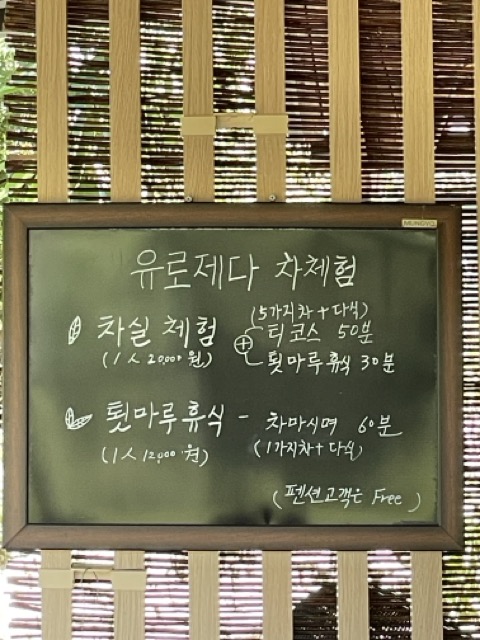 MUNGYO
유로제다 차체험
차실 체험
(1人 20,000원)
⊕
(5가지차 + 다식)
티코스 50분
툇마루휴식 30분
툇마루휴식 - 차마시며 60분
(1人 12,000원)
(1가지차 + 다식)
(펜션고객은 Free)